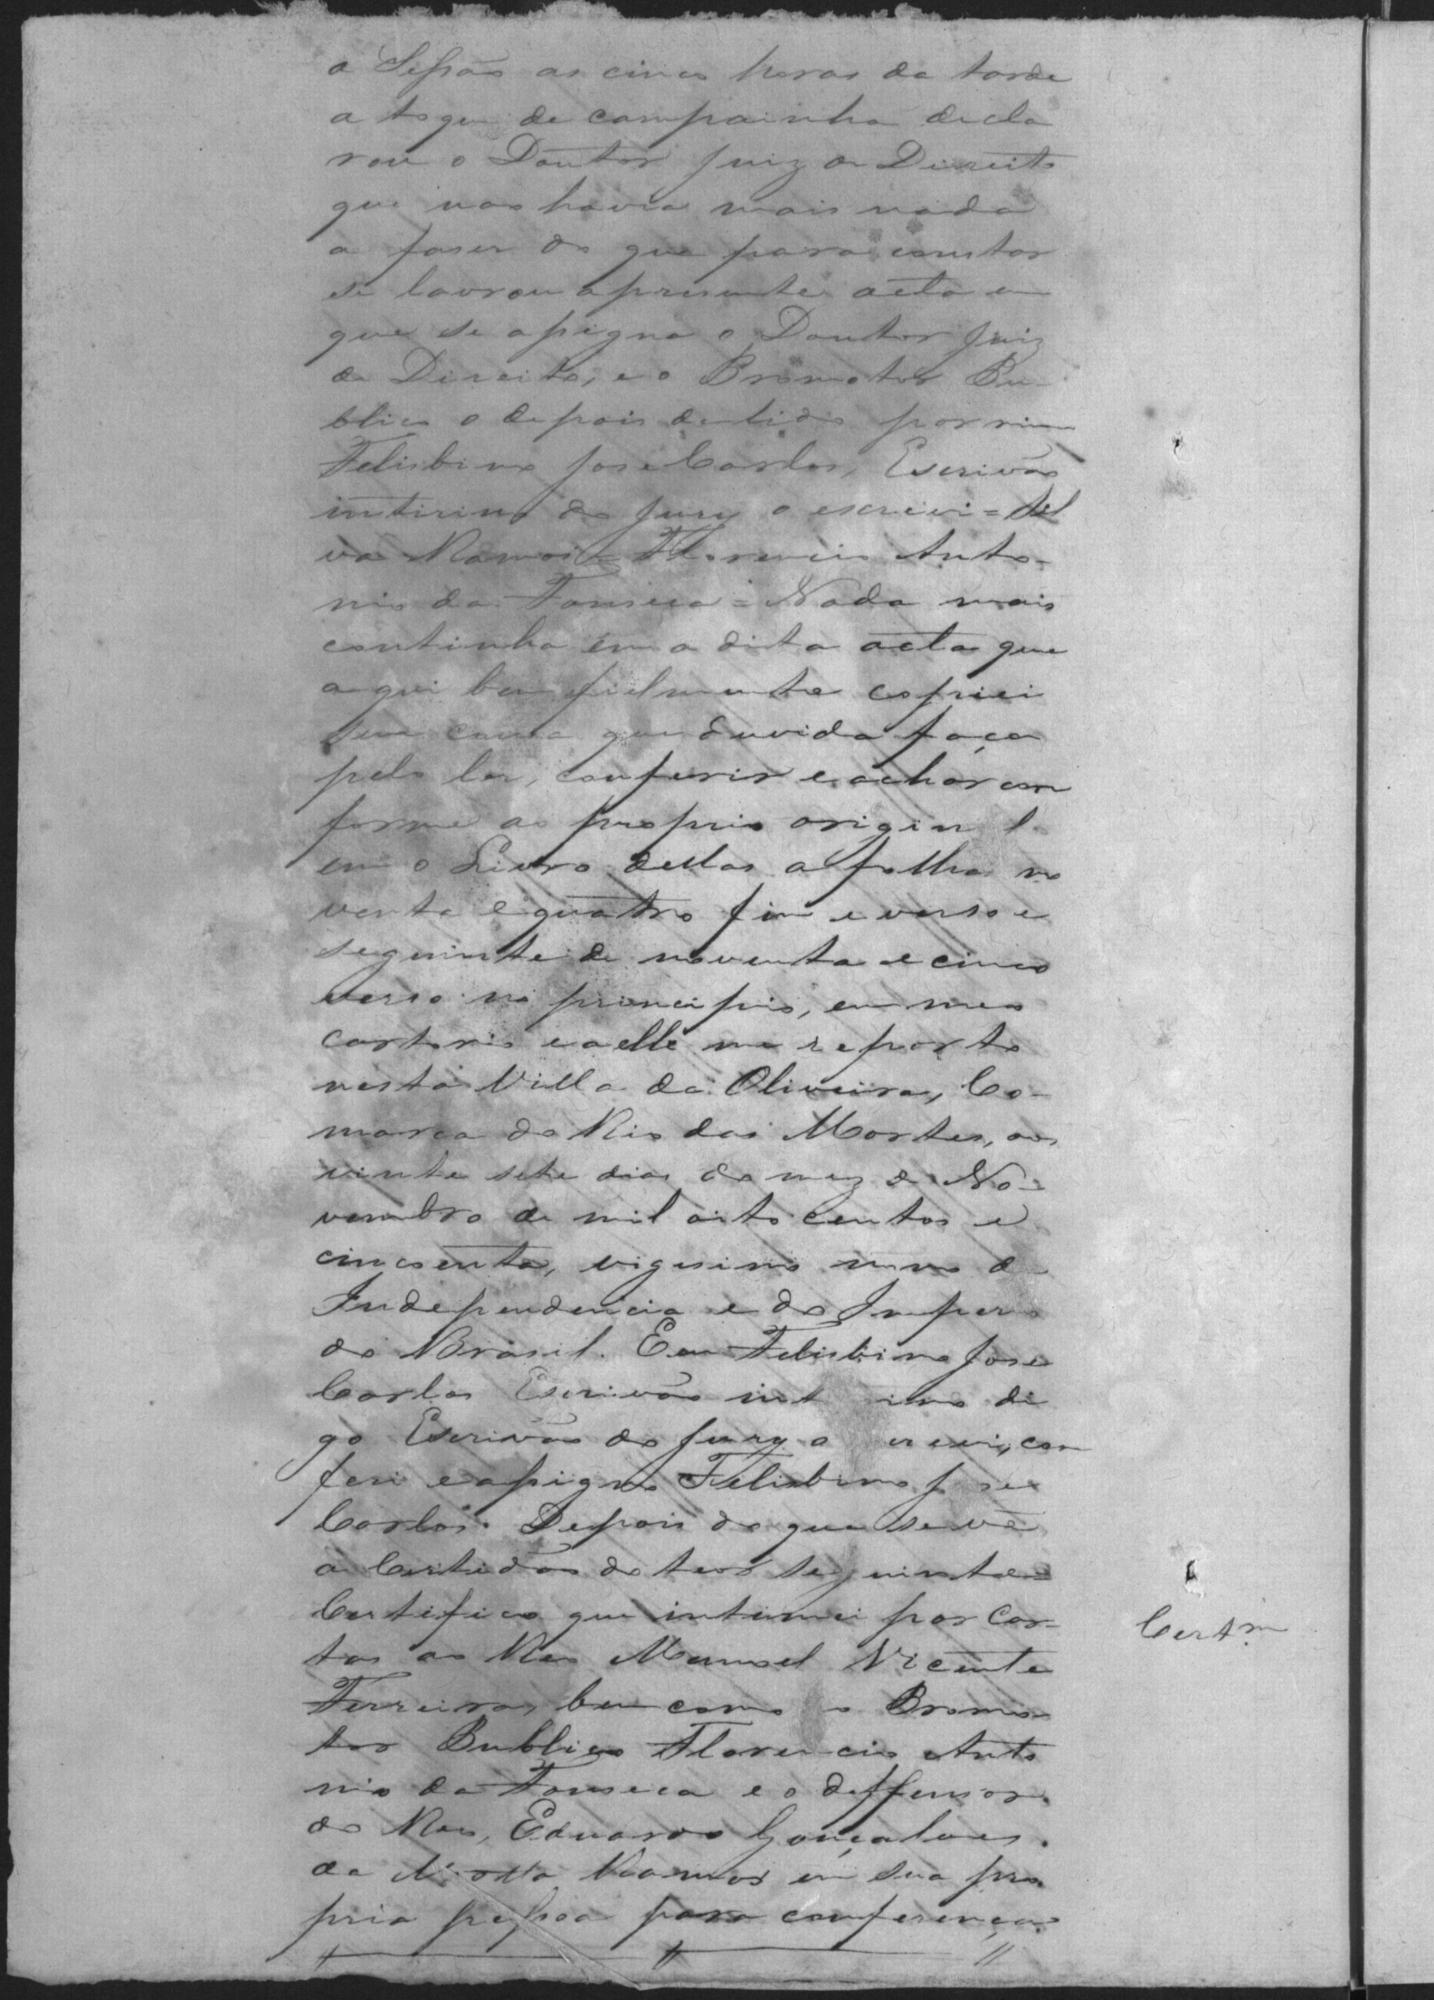 a Sessão as cinco horas da tarde
a toque de campainha decla
rou o Doutor Juiz de Direito
que nao havia mais nada
a faser do que para constar
se lavrou apresente acta em
que se assigna o Doutor Juiz
de Direito, e o Promotor Pu-
blico o depois de lido por mim
Felisbino Jose Carlos, Escrivão
intirino do Jury o escrevi = Sil
va Ramos = Florencio Anto-
nio da Fonseca = Nada mais
continha em a dita acta que
aqui bem fielmente copiei
sem cousa que duvida faça
pelo ler, conferir e achar con
forme ao proprio origin l
em o Livro dellas a folha no
venta e quatro fim e verso e
seguinte de noventa e cinco
verso no principio, em meo
cartorio e a elle me reporto
nesta Villa da Oliveira, Co-
marca do Rio das Mortes, aos
vinte sete dias do mez de No-
vembro de mil oito centos e
cincoenta, vigesimo nono da
Independencia e do Imperio
do Brasil. Eu Felisbino Jose
Carlos Escrivão int irino di
go Escrivão do Jury o escrevi, con
feri e assigno Felisbino Jose
Carlos. Depois do que se vê
a Certidão do teor seguinte =
Certifico que intimei por car-
tas ao Reo Manoel Vicente
Ferreira, bem como o Promo-
tor Publico Florencio Anto
nio da Fonseca e o deffensor
do Reo, Eduardo Gonçalves
da Motta Ramos em sua pro
pria pessoa para conferença.
Certm